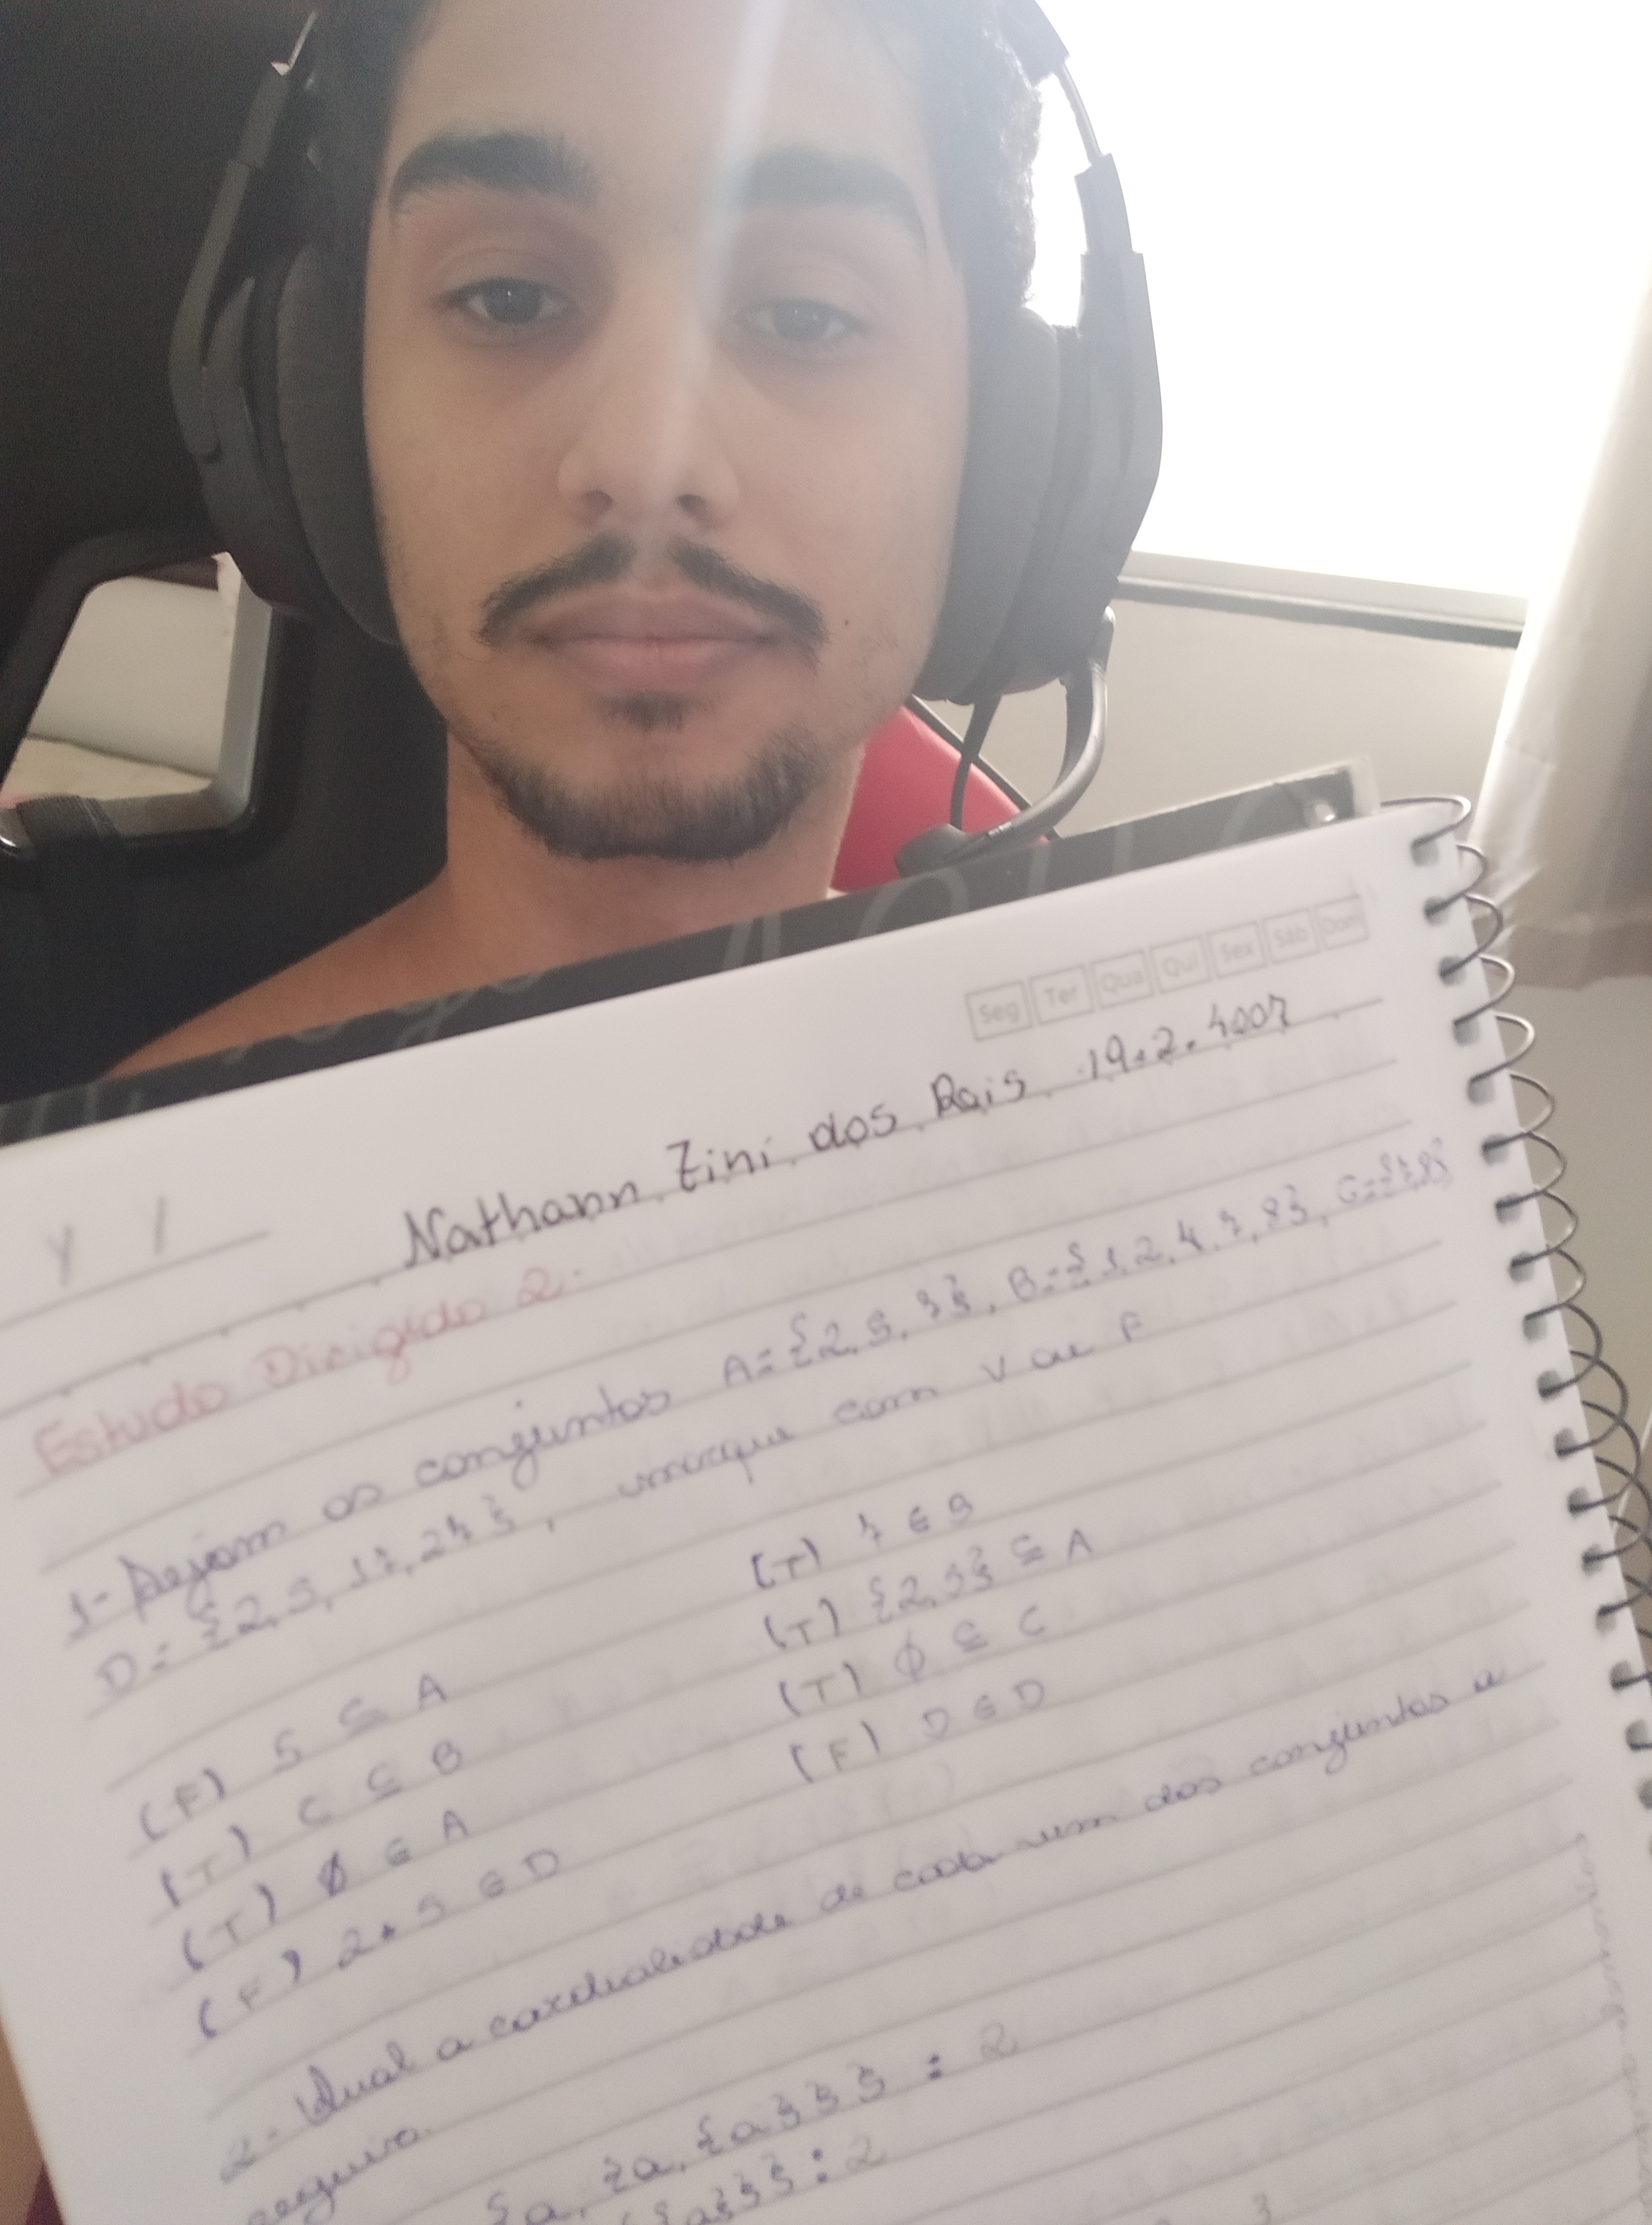 Seg Ter Qua Qui Sex Sáb Dom
Nathann Zini dos Reis 19.2.4007
Estudo Dirigido 2.
1- Sejam os conjuntos A={2, 5, 7}, B={1, 2, 4, 7, 8}, C={7,8}
D={2, 5, 17, 27}, marque com V ou F
(F) 5 ⊆ A
(T) 7 ∈ B
(T) C ⊆ B
(T) {2,5} ⊆ A
(T) ∅ ∈ A
(T) ∅ ⊆ C
(F) 2+5 ∈ D
(F) D ∈ D
2- Qual a cardinalidade de cada um dos conjuntos a
seguir.
{a, {a, {a}}} : 2
{a}}} : 2
3